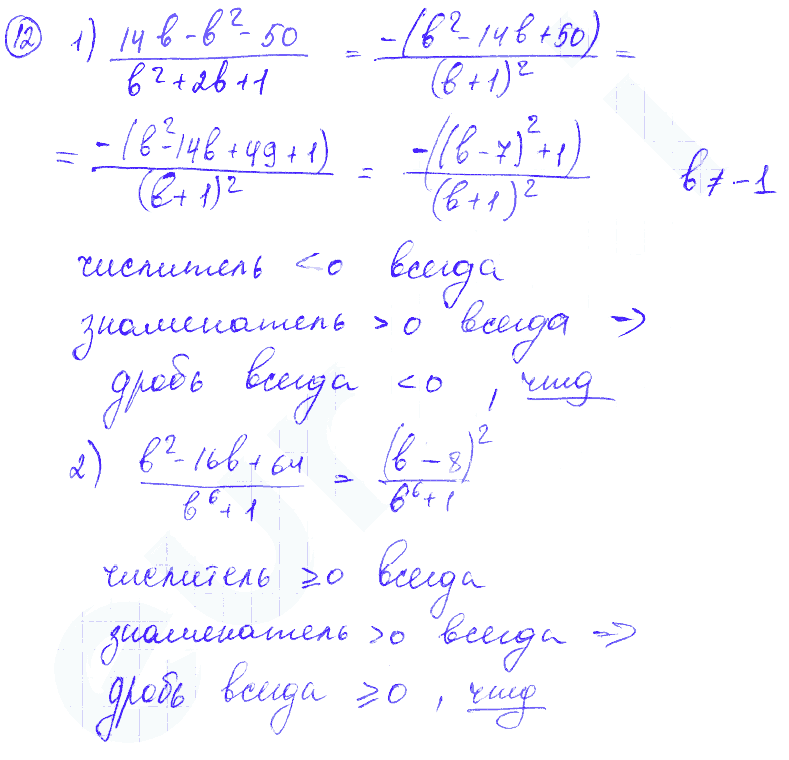 12 1) (14b - b² - 50)/(b² + 2b + 1) = -(b² - 14b + 50)/(b + 1)² =
= -(b² - 14b + 49 + 1)/(b + 1)² = -((b - 7)² + 1)/(b + 1)² b ≠ -1
числитель < 0 всегда
знаменатель > 0 всегда ⇒
дробь всегда < 0, чтд
2) (b² - 16b + 64)/(b⁶ + 1) = (b - 8)²/(b⁶ + 1)
числитель ≥ 0 всегда
знаменатель > 0 всегда ⇒
дробь всегда ≥ 0, чтд